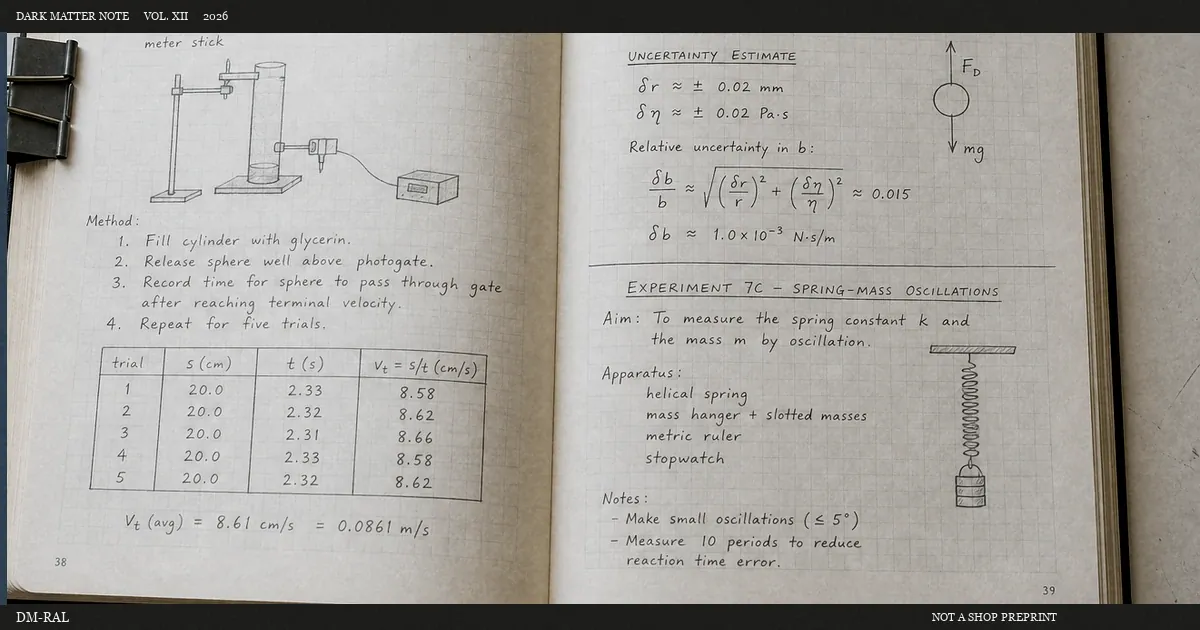 DARK MATTER NOTE VOL. XII 2026
meter stick
Method:
1. Fill cylinder with glycerin.
2. Release sphere well above photogate.
3. Record time for sphere to pass through gate
after reaching terminal velocity.
4. Repeat for five trials.
trial s (cm) t (s) vₜ = s/t (cm/s)
1 20.0 2.33 8.58
2 20.0 2.32 8.62
3 20.0 2.31 8.66
4 20.0 2.33 8.58
5 20.0 2.32 8.62
Vₜ (avg) = 8.61 cm/s = 0.0861 m/s
38
UNCERTAINTY ESTIMATE
δr ≈ ± 0.02 mm
δη ≈ ± 0.02 Pa·s
Relative uncertainty in b:
δb/b ≈ √((δr/r)² + (δη/η)²) ≈ 0.015
δb ≈ 1.0 x 10⁻³ N·s/m
F_D
mg
EXPERIMENT 7C – SPRING-MASS OSCILLATIONS
Aim: To measure the spring constant k and
the mass m by oscillation.
Apparatus:
helical spring
mass hanger + slotted masses
metric ruler
stopwatch
Notes:
– Make small oscillations (≤ 5°)
– Measure 10 periods to reduce
reaction time error.
39
DM-RAL NOT A SHOP PREPRINT